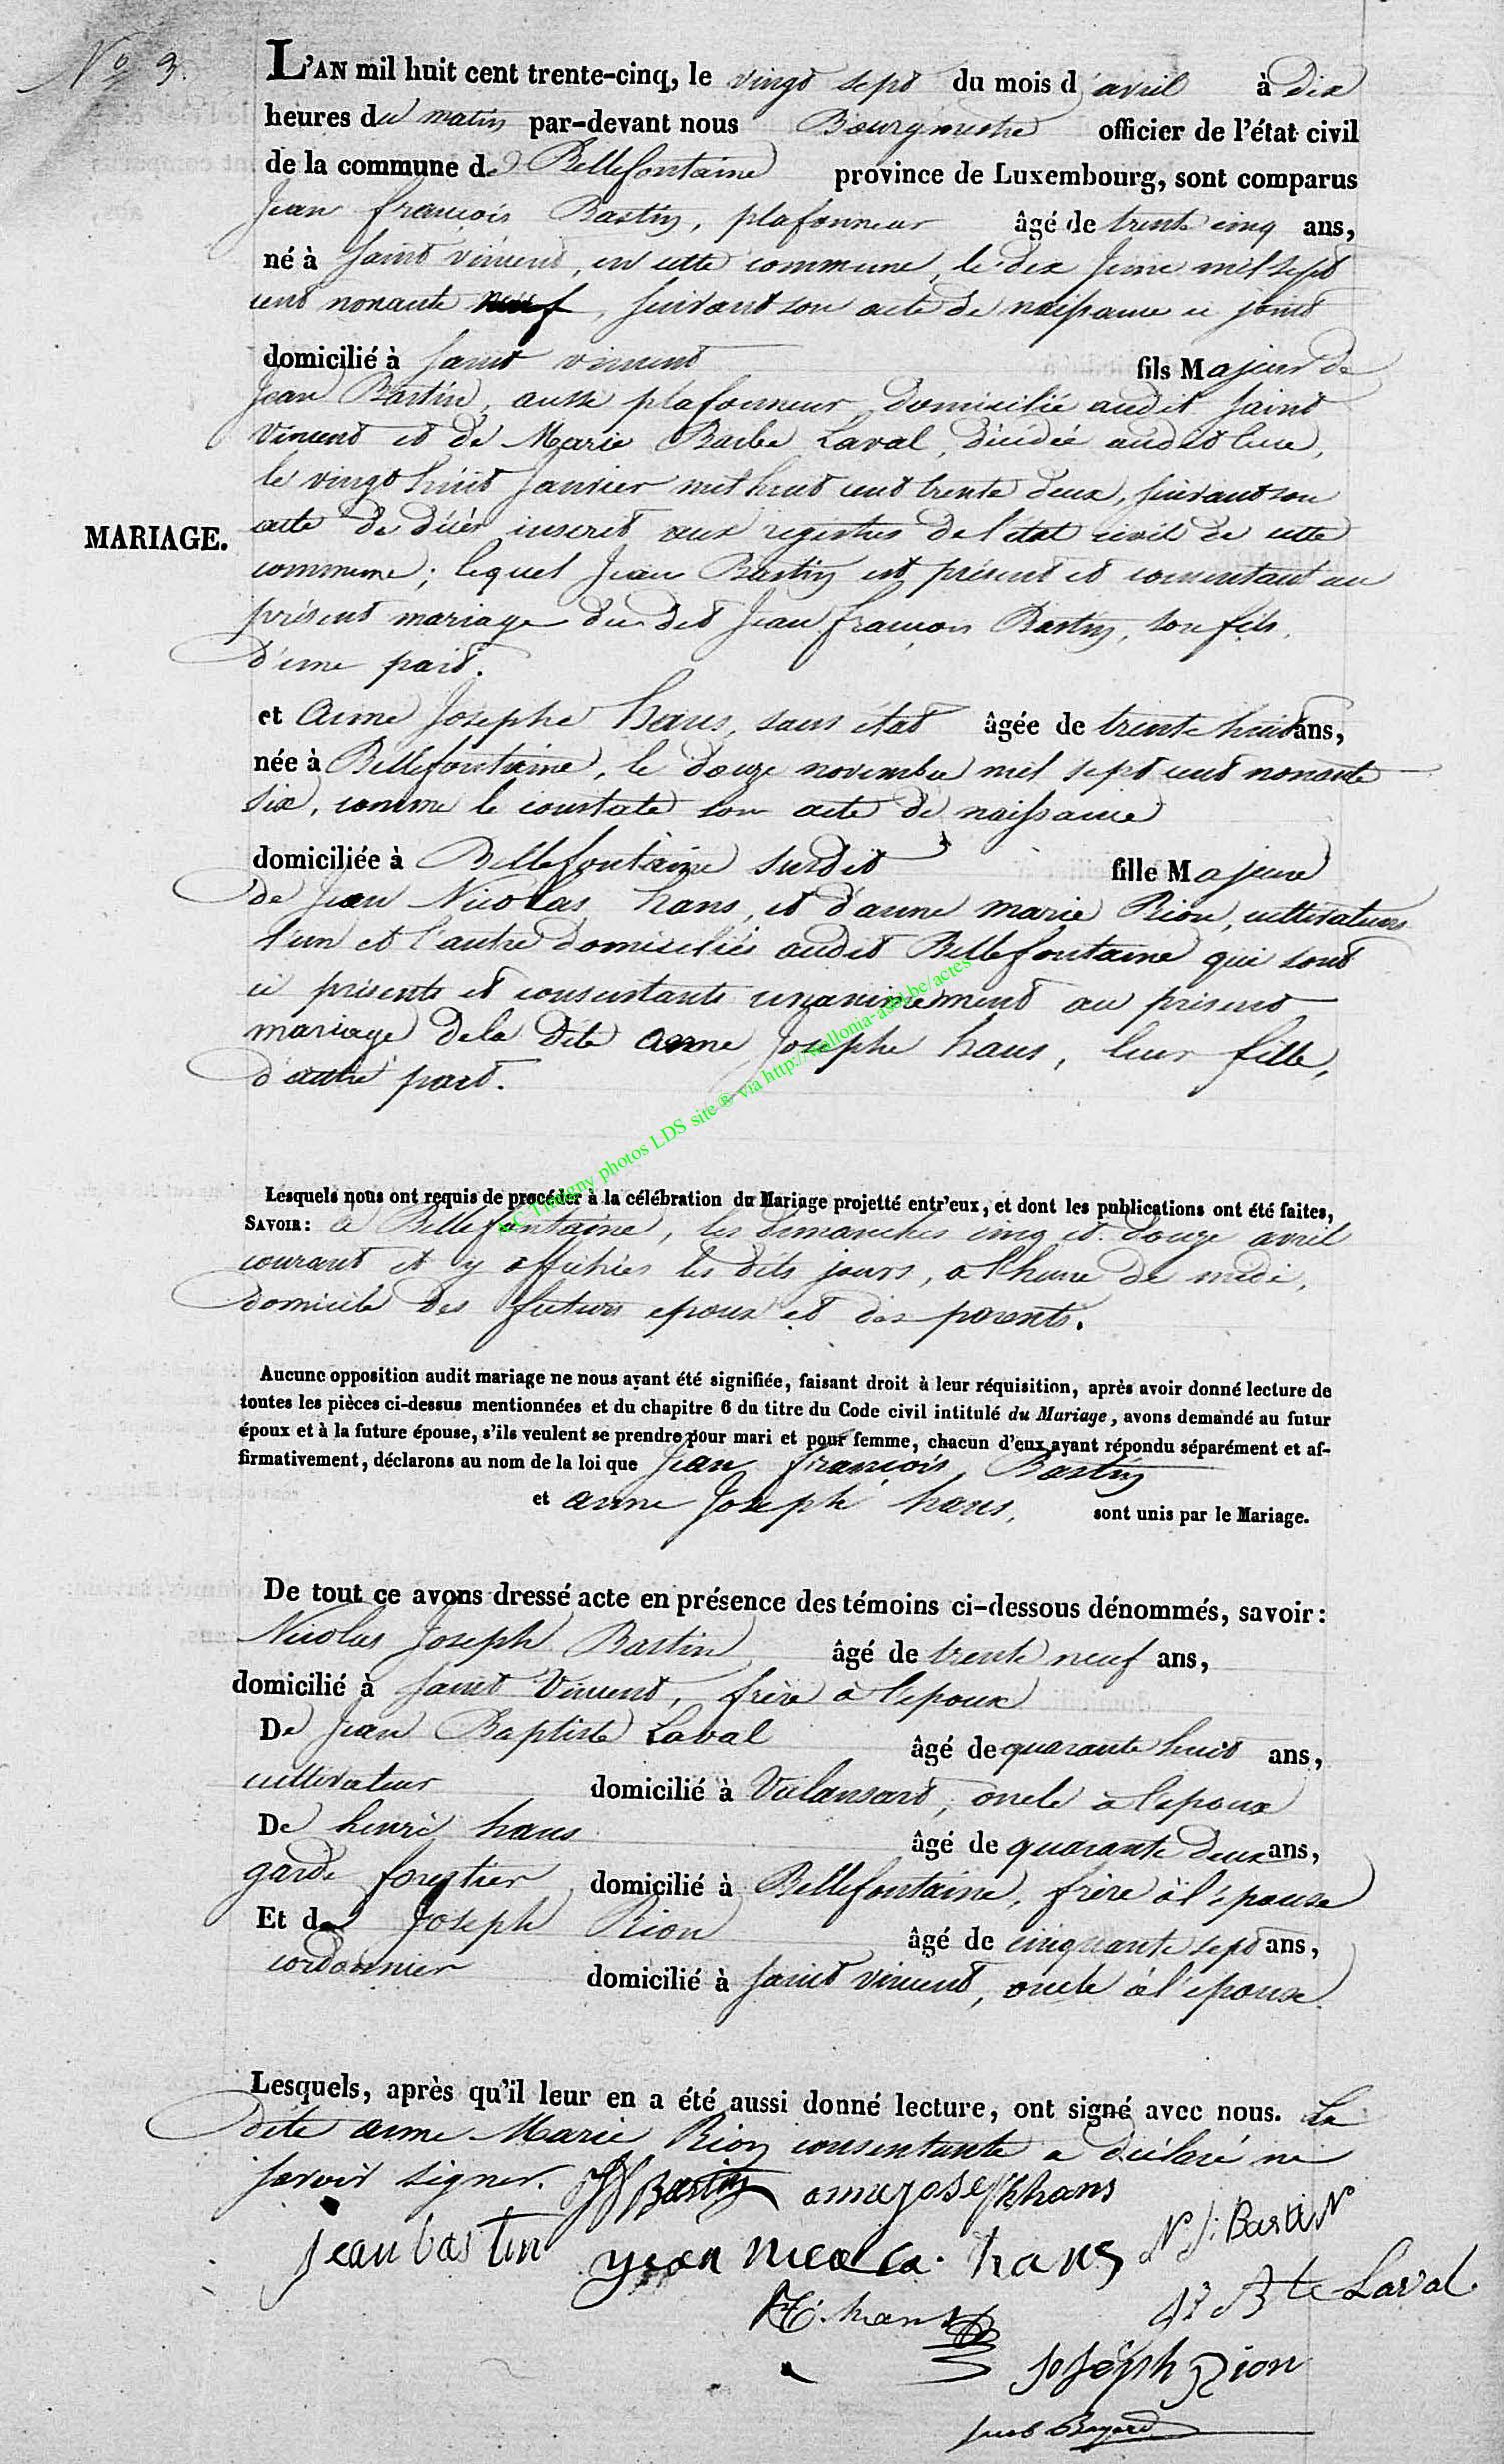 No 3.
L'AN mil huit cent trente-cinq, le vingt sept du mois d'avril à dix
heures du matin par-devant nous Bourgmestre officier de l'état civil
de la commune de Bellefontaine province de Luxembourg, sont comparus
Jean françois Bastin, plafonneur âgé de trente cinq ans,
né à Saint vincent, en cette commune, le dix Juin mil sept
cent nonante neuf, suivant son acte de naissance ci joint
domicilié à Saint vincent fils Majeur de
Jean Bastin, aussi plafonneur domicilié audit Saint
Vincent et de Marie Barbe Laval, décédée audit lieu,
le vingt huit Janvier mil huit cent trente deux, suivant son
acte de décès inscrit aux registres de l'état civil de cette
MARIAGE.
commune; lequel Jean Bastin est présent et consentant au
présent mariage du dit Jean françois Bastin, son fils,
d'une part.
et Anne Josephe hans, sans état âgée de trente huit ans,
née à Bellefontaine, le douze novembre mil sept cent nonante
six, comme le constate son acte de naissance
domiciliée à Bellefontaine susdit fille Majeure
de Jean Nicolas hans, et d'anne marie Rion, cultivateurs
l'un et l'autre domiciliés audit Bellefontaine qui sont
ci présents et consentants unanimement au présent
mariage de la dite anne Josephe hans, leur fille,
d'autre part.
photos LDS site ® via http://wallonia-asbl.be/actes
Lesquels nous ont requis de procéder à la célébration du Mariage projetté entr'eux, et dont les publications ont été faites,
SAVOIR: à Bellefontaine, les dimanches cinq et douze avril
courant et y affichées les dits jours, à l'heure de midi,
domicile des futurs epoux et des parents.
Aucune opposition audit mariage ne nous ayant été signifiée, faisant droit à leur réquisition, après avoir donné lecture de
toutes les pièces ci-dessus mentionnées et du chapitre 6 du titre du Code civil intitulé du Mariage, avons demandé au futur
époux et à la future épouse, s'ils veulent se prendre pour mari et pour femme, chacun d'eux ayant répondu séparément et af-
firmativement, déclarons au nom de la loi que Jean françois Bastin
et anne Joseph hans, sont unis par le Mariage.
De tout ce avons dressé acte en présence des témoins ci-dessous dénommés, savoir:
Nicolas Joseph Bastin âgé de trente neuf ans,
domicilié à Saint Vincent, frère à l'epoux
De Jean Baptiste Laval âgé de quarante huit ans,
cultivateur domicilié à Villansart, oncle à l'epoux
De henri hans âgé de quarante deux ans,
garde forestier domicilié à Bellefontaine, frère à l'epouse
Et de Joseph Rion âgé de cinquante sept ans,
cordonnier domicilié à Saint vincent, oncle à l'epouse
Lesquels, après qu'il leur en a été aussi donné lecture, ont signé avec nous. La
dite anne Marie Rion consentante a déclaré ne
savoir signer. JF Bastin anne Joseph hans
jean bastin jean nicola hans N J: BastiN
H. hans Jn Bte Laval
Joseph Rion